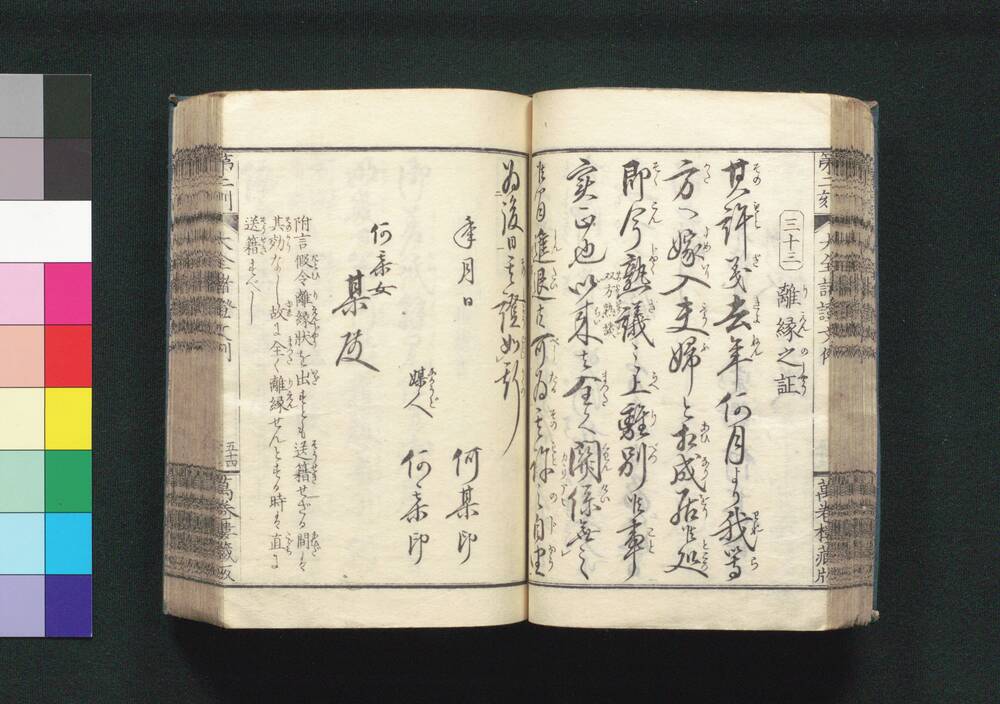 三十三 離縁之証
其許義去年何月より我等
方へ嫁入夫婦と相成居候処
即今熟議之上離別候事
双方熟談
実正也以来は全く関係無之
候間進退は可為其許之自由
為後日之證如斯
年月日
何某印
媒人 何某印
何某女
某殿
附言 仮令離縁状を出すとも送籍せざる間は
其効なし故に全く離縁せんとする時は直に
送籍すべし
五十四
萬巻樓藏版